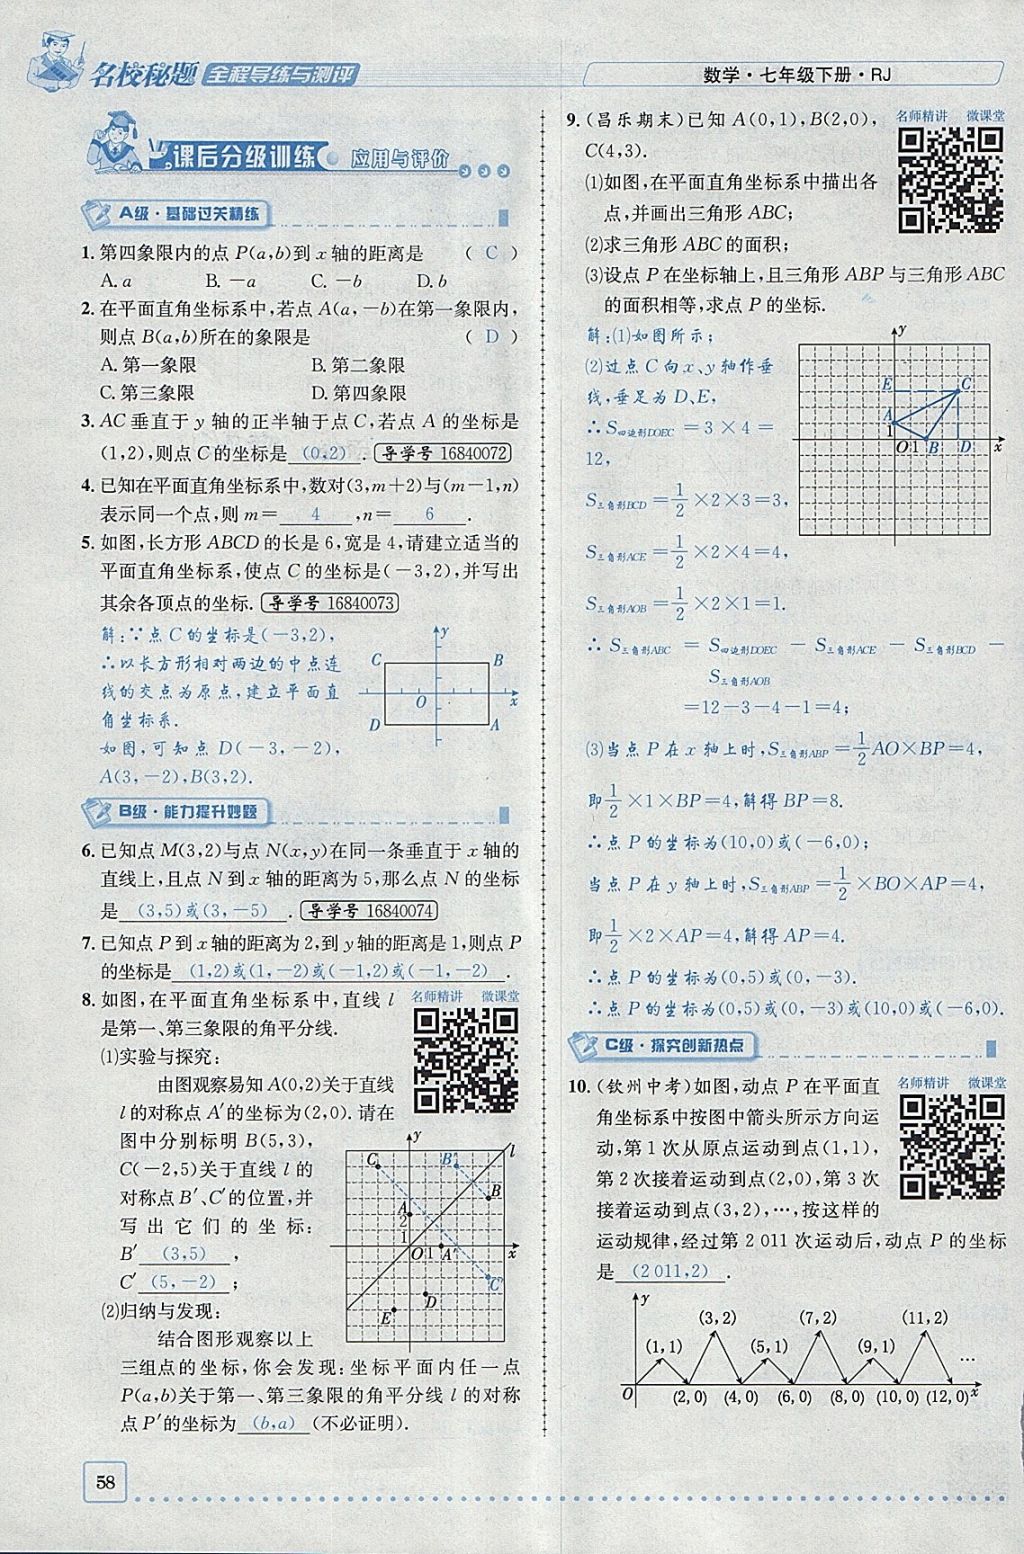 名校秘题 全程导练与测评
数学·七年级下册·RJ
课后分级训练 应用与评价
A级·基础过关精练
1. 第四象限内的点 P(a,b)到 x 轴的距离是 ( C )
A. a B. -a C. -b D. b
2. 在平面直角坐标系中,若点 A(a,-b)在第一象限内,
则点 B(a,b)所在的象限是 ( D )
A. 第一象限 B. 第二象限
C. 第三象限 D. 第四象限
3. AC 垂直于 y 轴的正半轴于点 C,若点 A 的坐标是
(1,2),则点 C 的坐标是 (0,2) . 导学号 16840072
4. 已知在平面直角坐标系中,数对(3,m+2)与(m-1,n)
表示同一个点,则 m= 4 ,n= 6 .
5. 如图,长方形 ABCD 的长是 6,宽是 4,请建立适当的
平面直角坐标系,使点 C 的坐标是(-3,2),并写出
其余各顶点的坐标. 导学号 16840073
解:∵点 C 的坐标是(-3,2),
∴以长方形相对两边的中点连
线的交点为原点,建立平面直
角坐标系.
如图,可知点 D(-3,-2),
A(3,-2),B(3,2).
y
C B
O x
D A
B级·能力提升妙题
6. 已知点 M(3,2)与点 N(x,y)在同一条垂直于 x 轴的
直线上,且点 N 到 x 轴的距离为 5,那么点 N 的坐标
是 (3,5)或(3,-5) . 导学号 16840074
7. 已知点 P 到 x 轴的距离为 2,到 y 轴的距离是 1,则点 P
的坐标是 (1,2)或(1,-2)或(-1,2)或(-1,-2) .
8. 如图,在平面直角坐标系中,直线 l
是第一、第三象限的角平分线.
名师精讲 微课堂
(1)实验与探究:
由图观察易知 A(0,2)关于直线
l 的对称点 A′的坐标为(2,0). 请在
图中分别标明 B(5,3),
C(-2,5)关于直线 l 的
对称点 B′、C′的位置,并
写出它们的坐标:
B′ (3,5) ,
C′ (5,-2) ;
y l
C B′
B
A
2
1
O 1 A′ x
C′
D
E
(2)归纳与发现:
结合图形观察以上
三组点的坐标,你会发现:坐标平面内任一点
P(a,b)关于第一、第三象限的角平分线 l 的对称
点 P′的坐标为 (b,a) (不必证明).
58
9. (昌乐期末)已知 A(0,1),B(2,0),
C(4,3).
名师精讲 微课堂
(1)如图,在平面直角坐标系中描出各
点,并画出三角形 ABC;
(2)求三角形 ABC 的面积;
(3)设点 P 在坐标轴上,且三角形 ABP 与三角形 ABC
的面积相等,求点 P 的坐标.
解:(1)如图所示;
(2)过点 C 向 x、y 轴作垂
线,垂足为 D、E,
∴S四边形DOEC=3×4=
12,
S三角形BCD=1/2×2×3=3,
S三角形ACE=1/2×2×4=4,
S三角形AOB=1/2×2×1=1.
y
E C
A
1
O 1 B D x
∴ S三角形ABC = S四边形DOEC - S三角形ACE - S三角形BCD -
S三角形AOB
=12-3-4-1=4;
(3)当点 P 在 x 轴上时,S三角形ABP=1/2AO×BP=4,
即1/2×1×BP=4,解得 BP=8.
∴点 P 的坐标为(10,0)或(-6,0);
当点 P 在 y 轴上时,S三角形ABP=1/2×BO×AP=4,
即1/2×2×AP=4,解得 AP=4.
∴点 P 的坐标为(0,5)或(0,-3).
∴点 P 的坐标为(0,5)或(0,-3)或(10,0)或(-6,0).
C级·探究创新热点
10. (钦州中考)如图,动点 P 在平面直
角坐标系中按图中箭头所示方向运
动,第 1 次从原点运动到点(1,1),
第 2 次接着运动到点(2,0),第 3 次
接着运动到点(3,2),…,按这样的
运动规律,经过第 2 011 次运动后,动点 P 的坐标
是 (2 011,2) .
名师精讲 微课堂
y
(3, 2) (7, 2) (11, 2)
(1, 1) (5, 1) (9, 1) …
O (2, 0) (4, 0) (6, 0) (8, 0) (10, 0) (12, 0) x